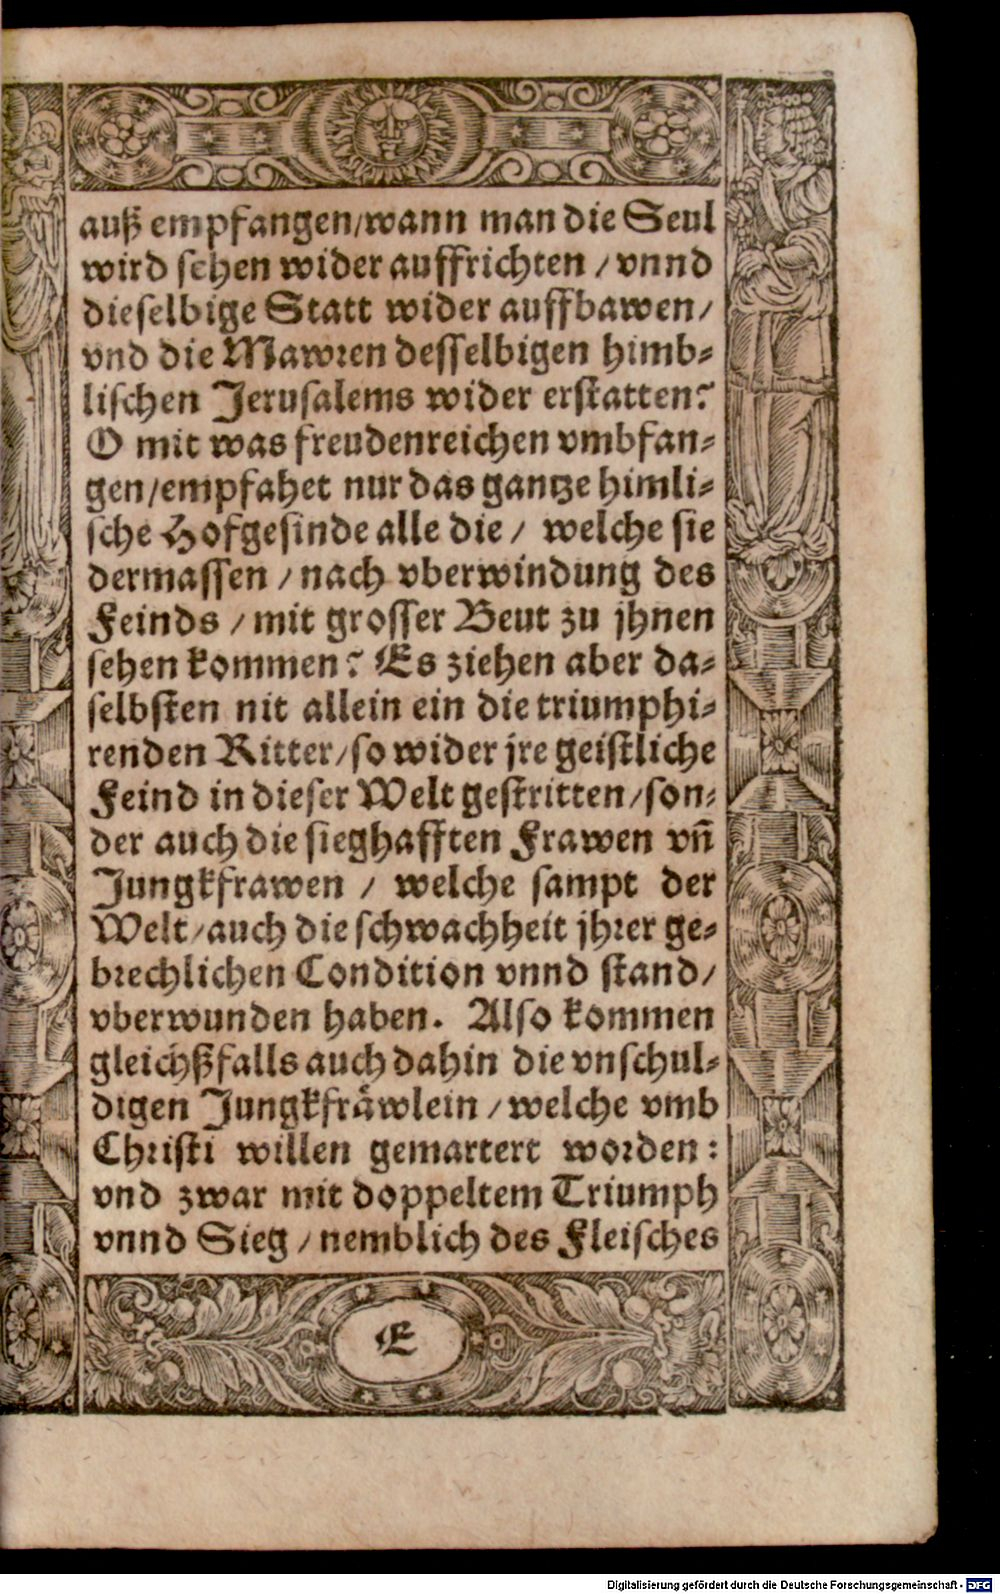 auß empfangen/wann man die Seul
wird sehen wider auffrichten / vnnd
dieselbige Statt wider auffbawen/
vnd die Mawren desselbigen himb⸗
lischen Jerusalems wider erstatten?
O mit was freudenreichen vmbfan⸗
gen/empfahet nur das gantze himli⸗
sche Hofgesinde alle die / welche sie
dermassen / nach vberwindung des
Feinds / mit grosser Beut zu jhnen
sehen kommen? Es ziehen aber da⸗
selbsten nit allein ein die triumphi⸗
renden Ritter/so wider jre geistliche
Feind in dieser Welt gestritten/son⸗
der auch die sieghafften Frawen vñ
Jungkfrawen / welche sampt der
Welt/auch die schwachheit jhrer ge⸗
brechlichen Condition vnnd stand/
vberwunden haben. Also kommen
gleichßfalls auch dahin die vnschul⸗
digen Jungkfraͤwlein / welche vmb
Christi willen gemartert worden:
vnd zwar mit doppeltem Triumph
vnnd Sieg / nemblich des Fleisches
E
Digitalisierung gefördert durch die Deutsche Forschungsgemeinschaft - DFG